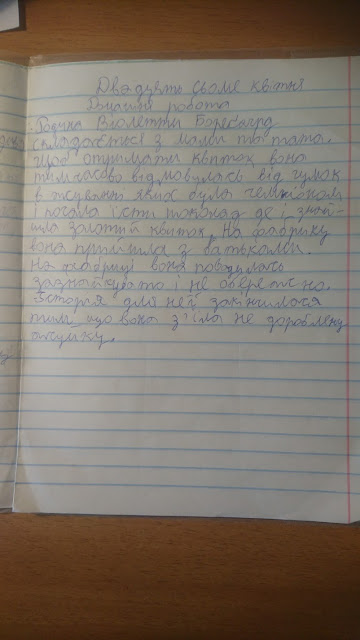 Двадцять сьоме квітня
Домашня робота
Родина Віолетти Борегард
складається з мами та тата.
Щоб отримати квиток вона
тимчасово відмовилась від гумок
в жуванні яких була чемпіоном
і почала їсти шоколад де і знай-
шла золотий квиток. На фабрику
вона прийшла з батьками.
На фабриці вона поводилась
зазнайкувато і не обережно.
Історія для неї закінчилася
тим, що вона з'їла не дороблену
жуйку.